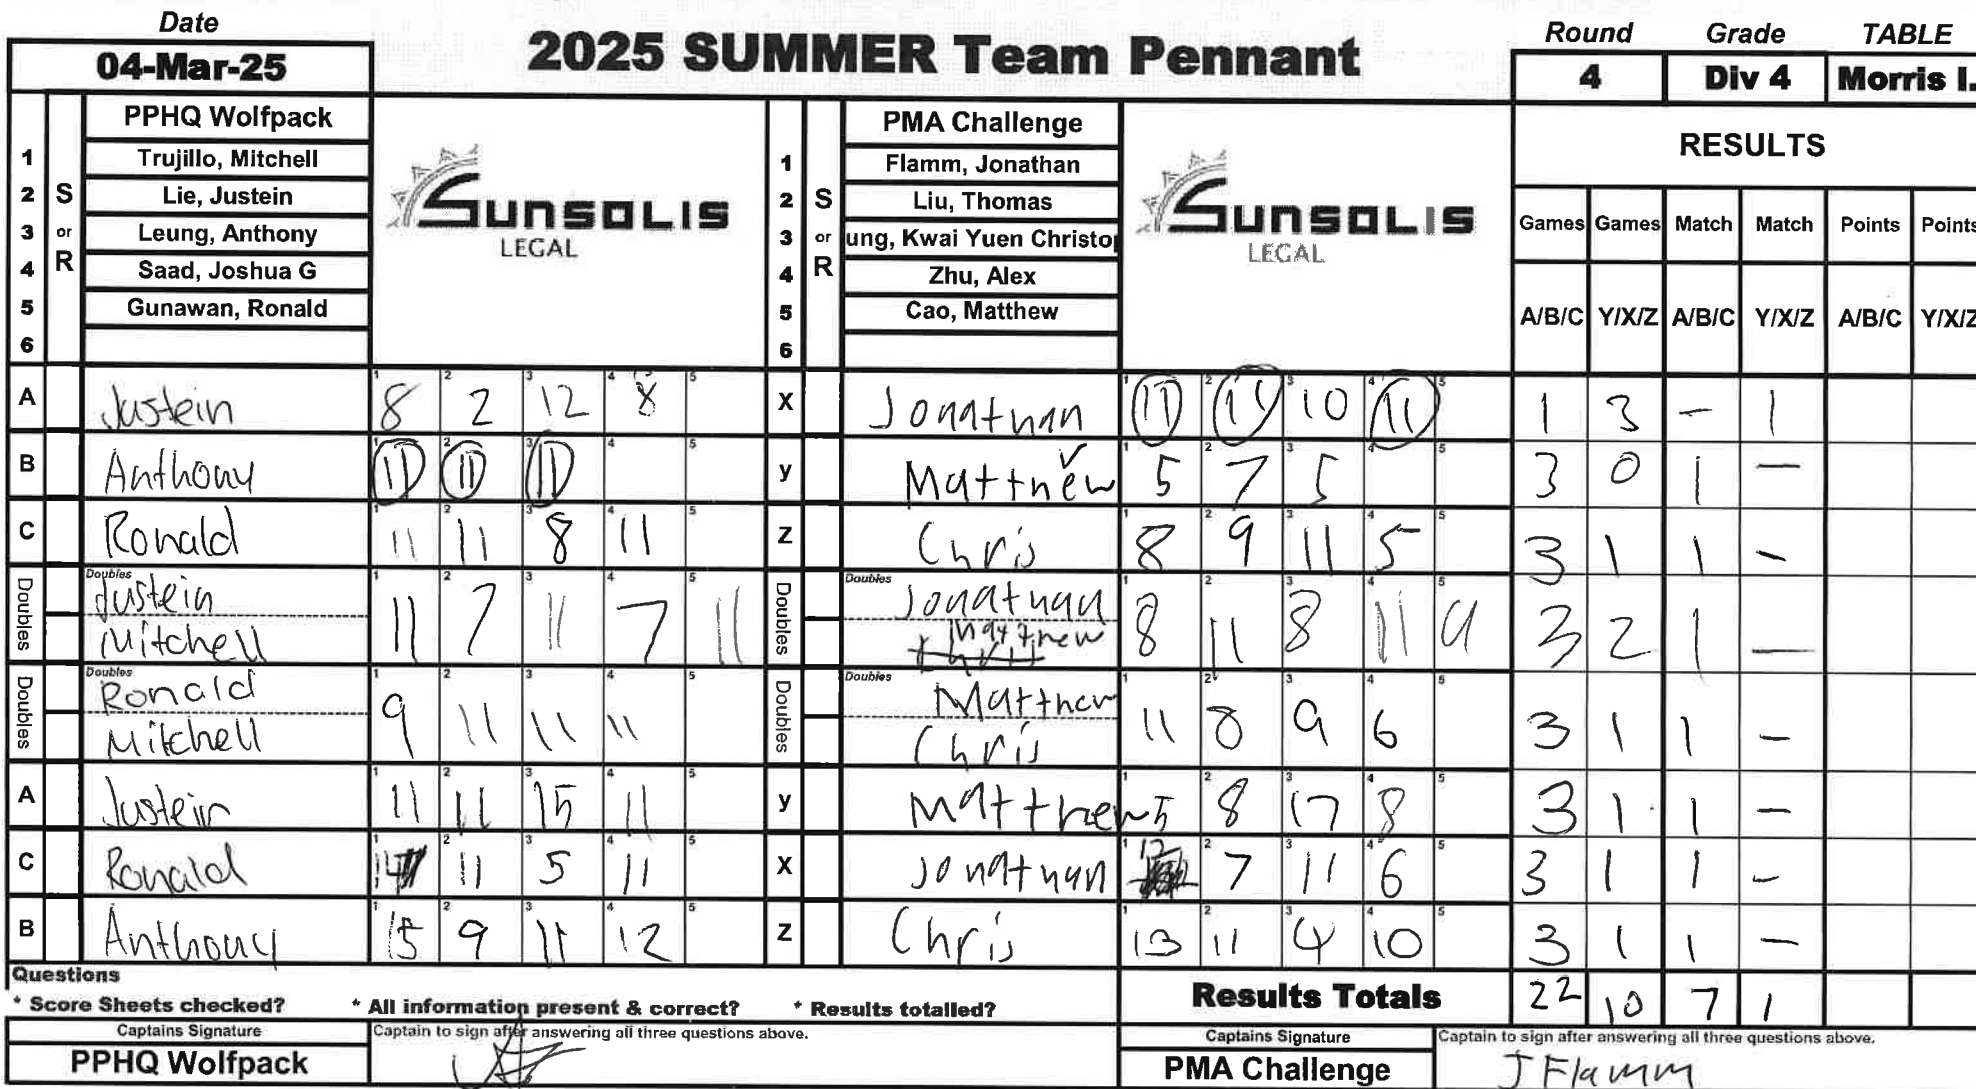 Date
04-Mar-25
2025 SUMMER Team Pennant
Round Grade TABLE
4 Div 4 Morris I.
PPHQ Wolfpack
1 Trujillo, Mitchell
2 Lie, Justein
3 Leung, Anthony
4 Saad, Joshua G
5 Gunawan, Ronald
6
S or R
SUNSOLIS
LEGAL
PMA Challenge
1 Flamm, Jonathan
2 Liu, Thomas
3 ung, Kwai Yuen Christo
4 Zhu, Alex
5 Cao, Matthew
6
S or R
SUNSOLIS
LEGAL
RESULTS
Games Games Match Match Points Points
A/B/C Y/X/Z A/B/C Y/X/Z A/B/C Y/X/Z
A Justein 8 2 12 8 X Jonathan 11 11 10 11 1 3 - 1
B Anthony 11 11 11 y Matthew 5 7 5 3 0 1 -
C Ronald 11 11 8 11 Z Chris 8 9 11 5 3 1 1 -
Doubles Justein Mitchell 11 7 11 7 11 Doubles Jonathan Matthew 8 11 8 11 9 3 2 1 -
Doubles Ronald Mitchell 9 11 11 11 Doubles Matthew Chris 11 8 9 6 3 1 1 -
A Justein 11 11 15 11 y Matthew 5 8 17 8 3 1 1 -
C Ronald 11 5 11 X Jonathan 12 7 11 6 3 1 1 -
B Anthony 15 9 11 12 Z Chris 13 11 4 10 3 1 1 -
Questions
* Score Sheets checked? * All information present & correct? * Results totalled?
Results Totals 22 10 7 1
Captains Signature Captain to sign after answering all three questions above.
PPHQ Wolfpack
Captains Signature Captain to sign after answering all three questions above.
PMA Challenge J Flamm